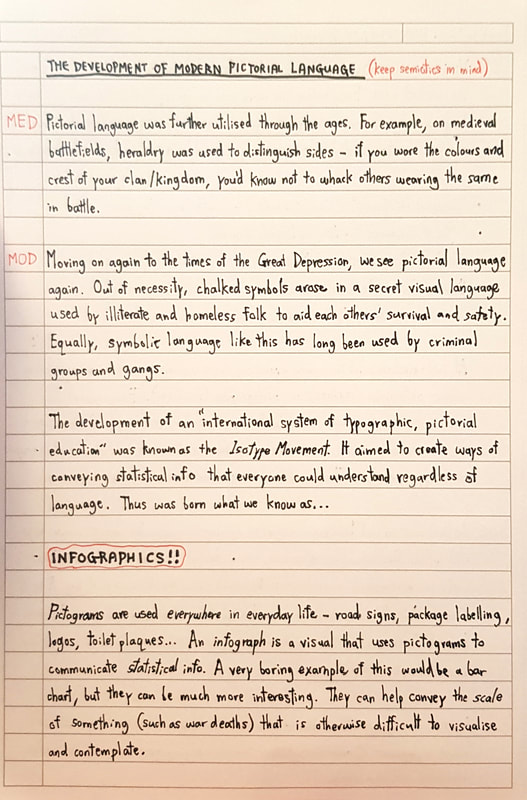 THE DEVELOPMENT OF MODERN PICTORIAL LANGUAGE (keep semiotics in mind)
MED Pictorial language was further utilised through the ages. For example, on medieval
battlefields, heraldry was used to distinguish sides – if you wore the colours and
crest of your clan/kingdom, you'd know not to whack others wearing the same
in battle.
MOD Moving on again to the times of the Great Depression, we see pictorial language
again. Out of necessity, chalked symbols arose in a secret visual language
used by illiterate and homeless folk to aid each others' survival and safety.
Equally, symbolic language like this has long been used by criminal
groups and gangs.
The development of an "international system of typographic, pictorial
education" was known as the Isotype Movement. It aimed to create ways of
conveying statistical info that everyone could understand regardless of
language. Thus was born what we know as...
INFOGRAPHICS!!
Pictograms are used everywhere in everyday life – road signs, package labelling,
logos, toilet plaques... An infograph is a visual that uses pictograms to
communicate statistical info. A very boring example of this would be a bar
chart, but they can be much more interesting. They can help convey the scale
of something (such as war deaths) that is otherwise difficult to visualise
and contemplate.